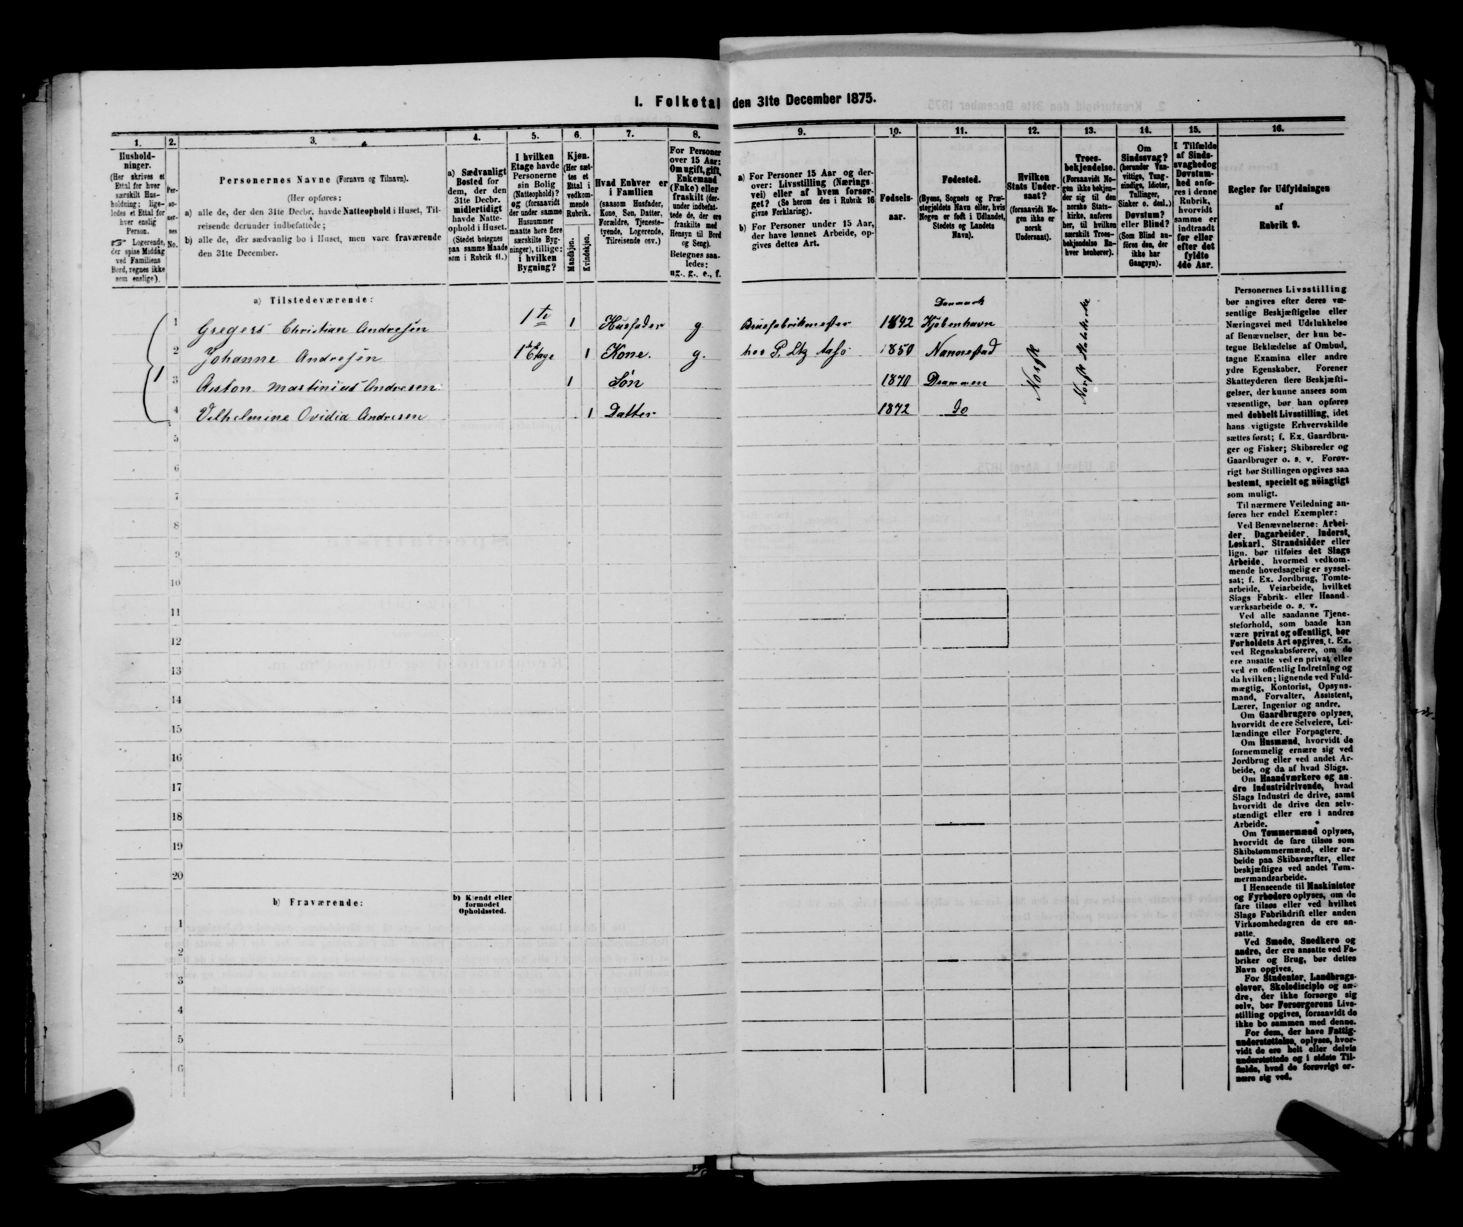 I. Folketal den 31te December 1875.
1. 2. 3. 4. 5. 6. 7. 8. 9. 10. 11. 12. 13. 14. 15. 16.
Hushold-
ninger.
(Her skrives et
Ettal for hver
særskilt Hus-
holdning; lige-
ledes et Ettal for
hver enslig
Person.
☞ Logerende,
der spise Middag
ved Familiens
Bord, regnes ikke
som enslige).
Per-
so-
ner-
nes
No.
Personernes Navne (Fornavn og Tilnavn).
(Her opføres:
a) alle de, der den 31te Decbr. havde Natteophold i Huset, Til-
reisende derunder indbefattede;
b) alle de, der sædvanlig bo i Huset, men vare fraværende
den 31te December.
a) Sædvanligt
Bosted for
dem, der den
31te Decbr.
midlertidigt
havde Natte-
ophold i Huset.
(Stedet betegnes
paa samme Maade
som i Rubrik 11.)
I hvilken
Etage havde
Personerne
sin Bolig
(Natteophold)?
og (forsaavidt
der under samme
Husnummer
maatte høre flere
særskilte Byg-
ninger), tillige:
i hvilken
Bygning?
Kjøn.
(Her sæt-
tes et
Ettal i
vedkom-
mende
Rubrik.
Mandkjøn.
Kvindekjøn.
Hvad Enhver er
i Familien
(saasom Husfader,
Kone, Søn, Datter,
Forældre, Tjeneste-
tyende, Logerende,
Tilreisende osv.)
For Personer
over 15 Aar:
Om ugift, gift,
Enkemand
(Enke) eller
fraskilt (der-
under indbefat-
tede de, der ere
fraskilte med
Hensyn til Bord
og Seng).
Betegnes saa-
ledes:
ug., g., e., f.
a) For Personer 15 Aar og der-
over: Livsstilling (Nærings-
vei) eller af hvem forsør-
get? (Se herom den i Rubrik 16
givne Forklaring).
b) For Personer under 15 Aar,
der have lønnet Arbeide, op-
gives dettes Art.
Fødsels-
aar.
Fødested.
(Byens, Sognets og Præ-
stegjeldets Navn eller, hvis
Nogen er født i Udlandet,
Stedets og Landets
Navn).
Hvilken
Stats Under-
saat?
(forsaavidt No-
gen ikke er
norsk
Undersaat).
Troes-
bekjendelse.
(Forsaavidt No-
gen ikke bekjen-
der sig til den
norske Stats-
kirke, anføres
her, til hvilken
særskilt Troes-
bekjendelse En-
hver henhører).
Om
Sindssvag?
(herunder Van-
vittige, Tung-
sindige, Idioter,
Tullinger,
Sinker o. desl.)
Døvstum?
eller Blind?
(Som Blind an-
føres den, der
ikke har
Gangsyn).
I Tilfælde
af Sinds-
svaghed og
Døvstum-
hed anfø-
res i denne
Rubrik,
hvorvidt
samme er
indtraadt
før eller
efter det
fyldte
4de Aar.
Regler for Udfyldningen
af
Rubrik 9.
a) Tilstedeværende:
1 Gregers Christian Andresen 1te 1 Husfader g Brusfabrikmester 1842 Danmark Kjøbenhavn
2 Johanne Andresen 1ste Etage 1 Kone. g. hos P. Ltz Aasø 1850 Nannestad
1
3 Anton Martinius Andresen 1 Søn 1870 Drammen
4 Vilhelmine Ovidia Andresen 1 Datter 1872 do
Norsk
Norsk Statskirke
5
6
7
8
9
10
11
12
13
14
15
16
17
18
19
20
b) Fraværende:
b) Kjendt eller
formodet
Opholdssted.
1
2
3
4
5
6
Personernes Livsstilling
bør angives efter deres væ-
sentlige Beskjæftigelse eller
Næringsvei med Udelukkelse
af Benævnelser, der kun be-
tegne Beklædelse af Ombud,
tagne Examina eller andre
ydre Egenskaber. Forener
Skatteyderen flere Beskjæfti-
gelser, der kunne ansees som
væsentlige, bør han opføres
med dobbelt Livsstilling, idet
hans vigtigste Erhvervskilde
sættes først; f. Ex. Gaardbru-
ger og Fisker; Skibsreder og
Gaardbruger o. s. v. Forøv-
rigt bør Stillingen opgives saa
bestemt, specielt og nöiagtigt
som muligt.
Til nærmere Veiledning an-
føres her endel Exempler:
Ved Benævnelserne: Arbei-
der, Dagarbeider, Inderst,
Løskarl, Strandsidder eller
lign. bør tilføies det Slags
Arbeide, hvormed vedkom-
mende hovedsagelig er syssel-
sat; f. Ex. Jordbrug, Tomte-
arbeide, Veiarbeide, hvilket
Slags Fabrik- eller Haand-
værksarbeide o. s. v.
Ved alle saadanne Tjene-
steforhold, som baade kan
være privat og offentligt, bør
Forholdets Art opgives, t. Ex.
ved Regnskabsførere, om de
ere ansatte ved en privat eller
ved en offentlig Indretning og
da hvilken; lignende ved Fuld-
mægtig, Kontorist, Opsyns-
mand, Forvalter, Assistent,
Lærer, Ingeniør og andre.
Om Gaardbrugere oplyses,
hvorvidt de ere Selveiere, Lei-
lændinge eller Forpagtere.
Om Husmænd, hvorvidt de
fornemmelig ernære sig ved
Jordbrug eller ved andet Ar-
beide, og da af hvad Slags.
Om Haandværkere og an-
dre Industridrivende, hvad
Slags Industri de drive, samt
hvorvidt de drive den selv-
stændigt eller ere i andres
Arbeide.
Om Tømmermænd oplyses,
hvorvidt de fare tilsøs som
Skibstømmermænd, eller ar-
beide paa Skibsværfter, eller
beskjæftiges ved andet Tøm-
mermandsarbeide.
I Henseende til Maskinister
og Fyrbødere oplyses, om de
fare tilsøs eller ved hvilket
Slags Fabrikdrift eller anden
Virksomhedsgren de ere an-
satte.
Ved Smede, Snedkere og
andre, der ere ansatte ved Fa-
briker og Brug, bør dettes
Navn opgives.
For Studenter, Landbrugs-
elever, Skoledisciple og an-
dre, der ikke forsørge sig
selv, bør Forsørgerens Livs-
stilling opgives, forsaavidt de
ikke bo sammen med denne.
For dem, der have Fattig-
understøttelse, oplyses, hvor-
vidt de ere helt eller delvis
understøttede og i sidste Til-
fælde, hvad de forøvrigt er-
nære sig ved.